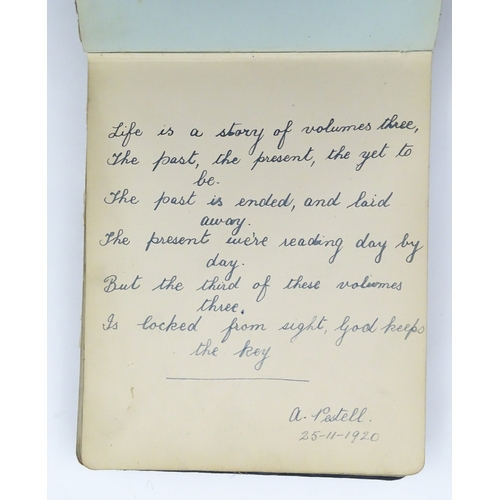 Life is a story of volumes three,
The past, the present, the yet to
be.
The past is ended, and laid
away.
The present we're reading day by
day.
But the third of these volumes
three.
Is locked from sight, God keeps
the key
A. Pestell.
25-11-1920